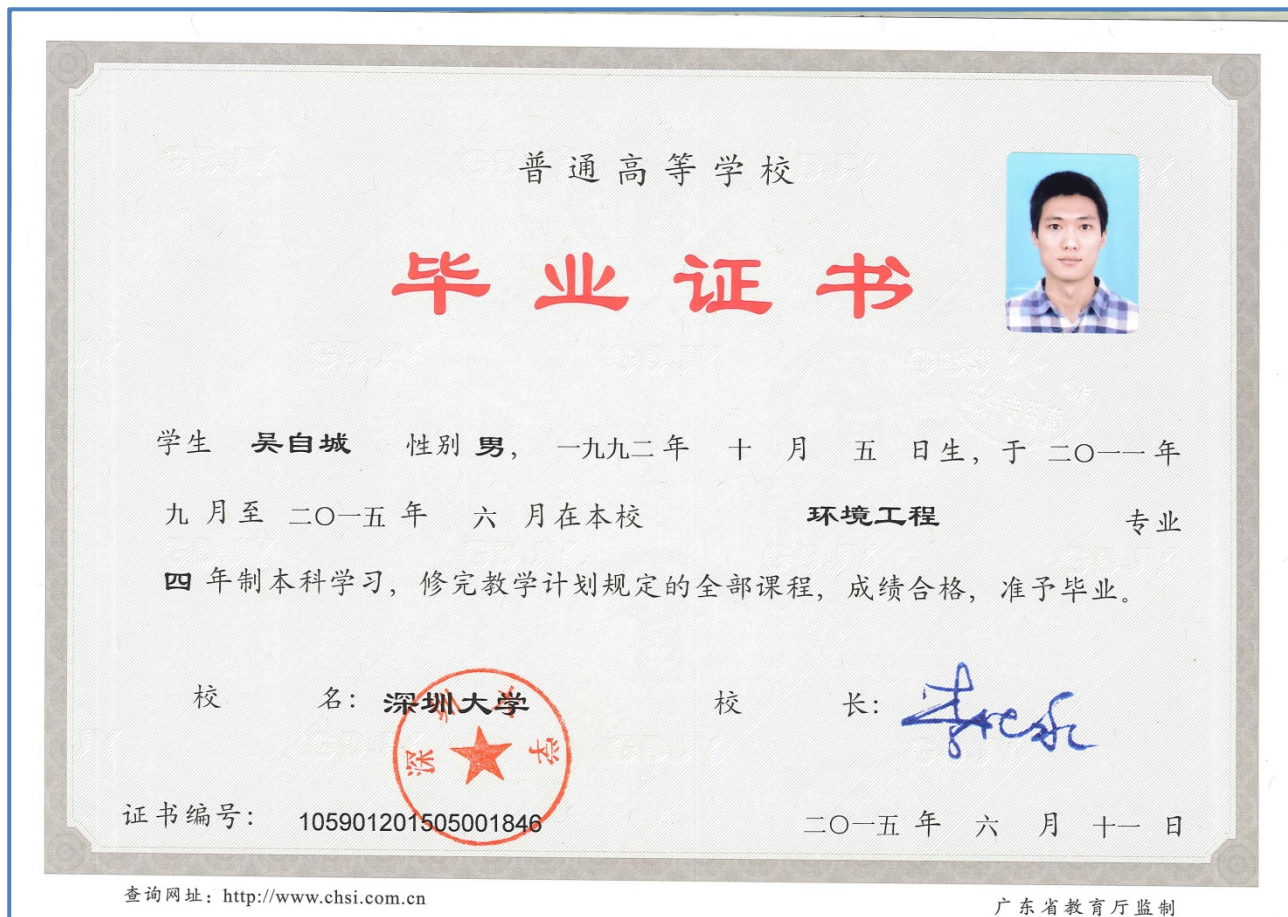 普通高等学校
毕业证书
学生 吴自城 性别 男， 一九九二 年 十 月 五 日生，于 二〇一一 年
九 月至 二〇一五 年 六 月在本校 环境工程 专业
四 年制本科学习，修完教学计划规定的全部课程，成绩合格，准予毕业。
校 名：深圳大学 校 长：
深圳大学
证书编号： 105901201505001846 二〇一五 年 六 月 十一 日
查询网址：http://www.chsi.com.cn 广东省教育厅监制